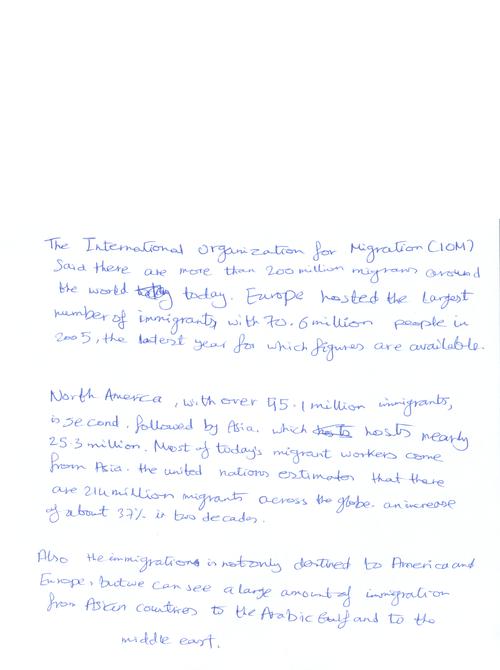 The International Organization for Migration (IOM)
Said there are more than 200 million migrans around
the world today. Europe hosted the largest
number of immigrants, with 70.6 million people in
2005, the latest year for which figures are available.
North America, with over 45.1 million immigrants,
is second. followed by Asia. which hosts nearly
25.3 million. Most of today's migrant workers come
from Asia. the united nations estimates that there
are 214 million migrants across the globe. an increase
of about 37% in two decades.
Also the immigrations is not only destined to America and
Europe, but we can see a large amount of immigration
from Asian countries to the Arabic Gulf and to the
middle east.